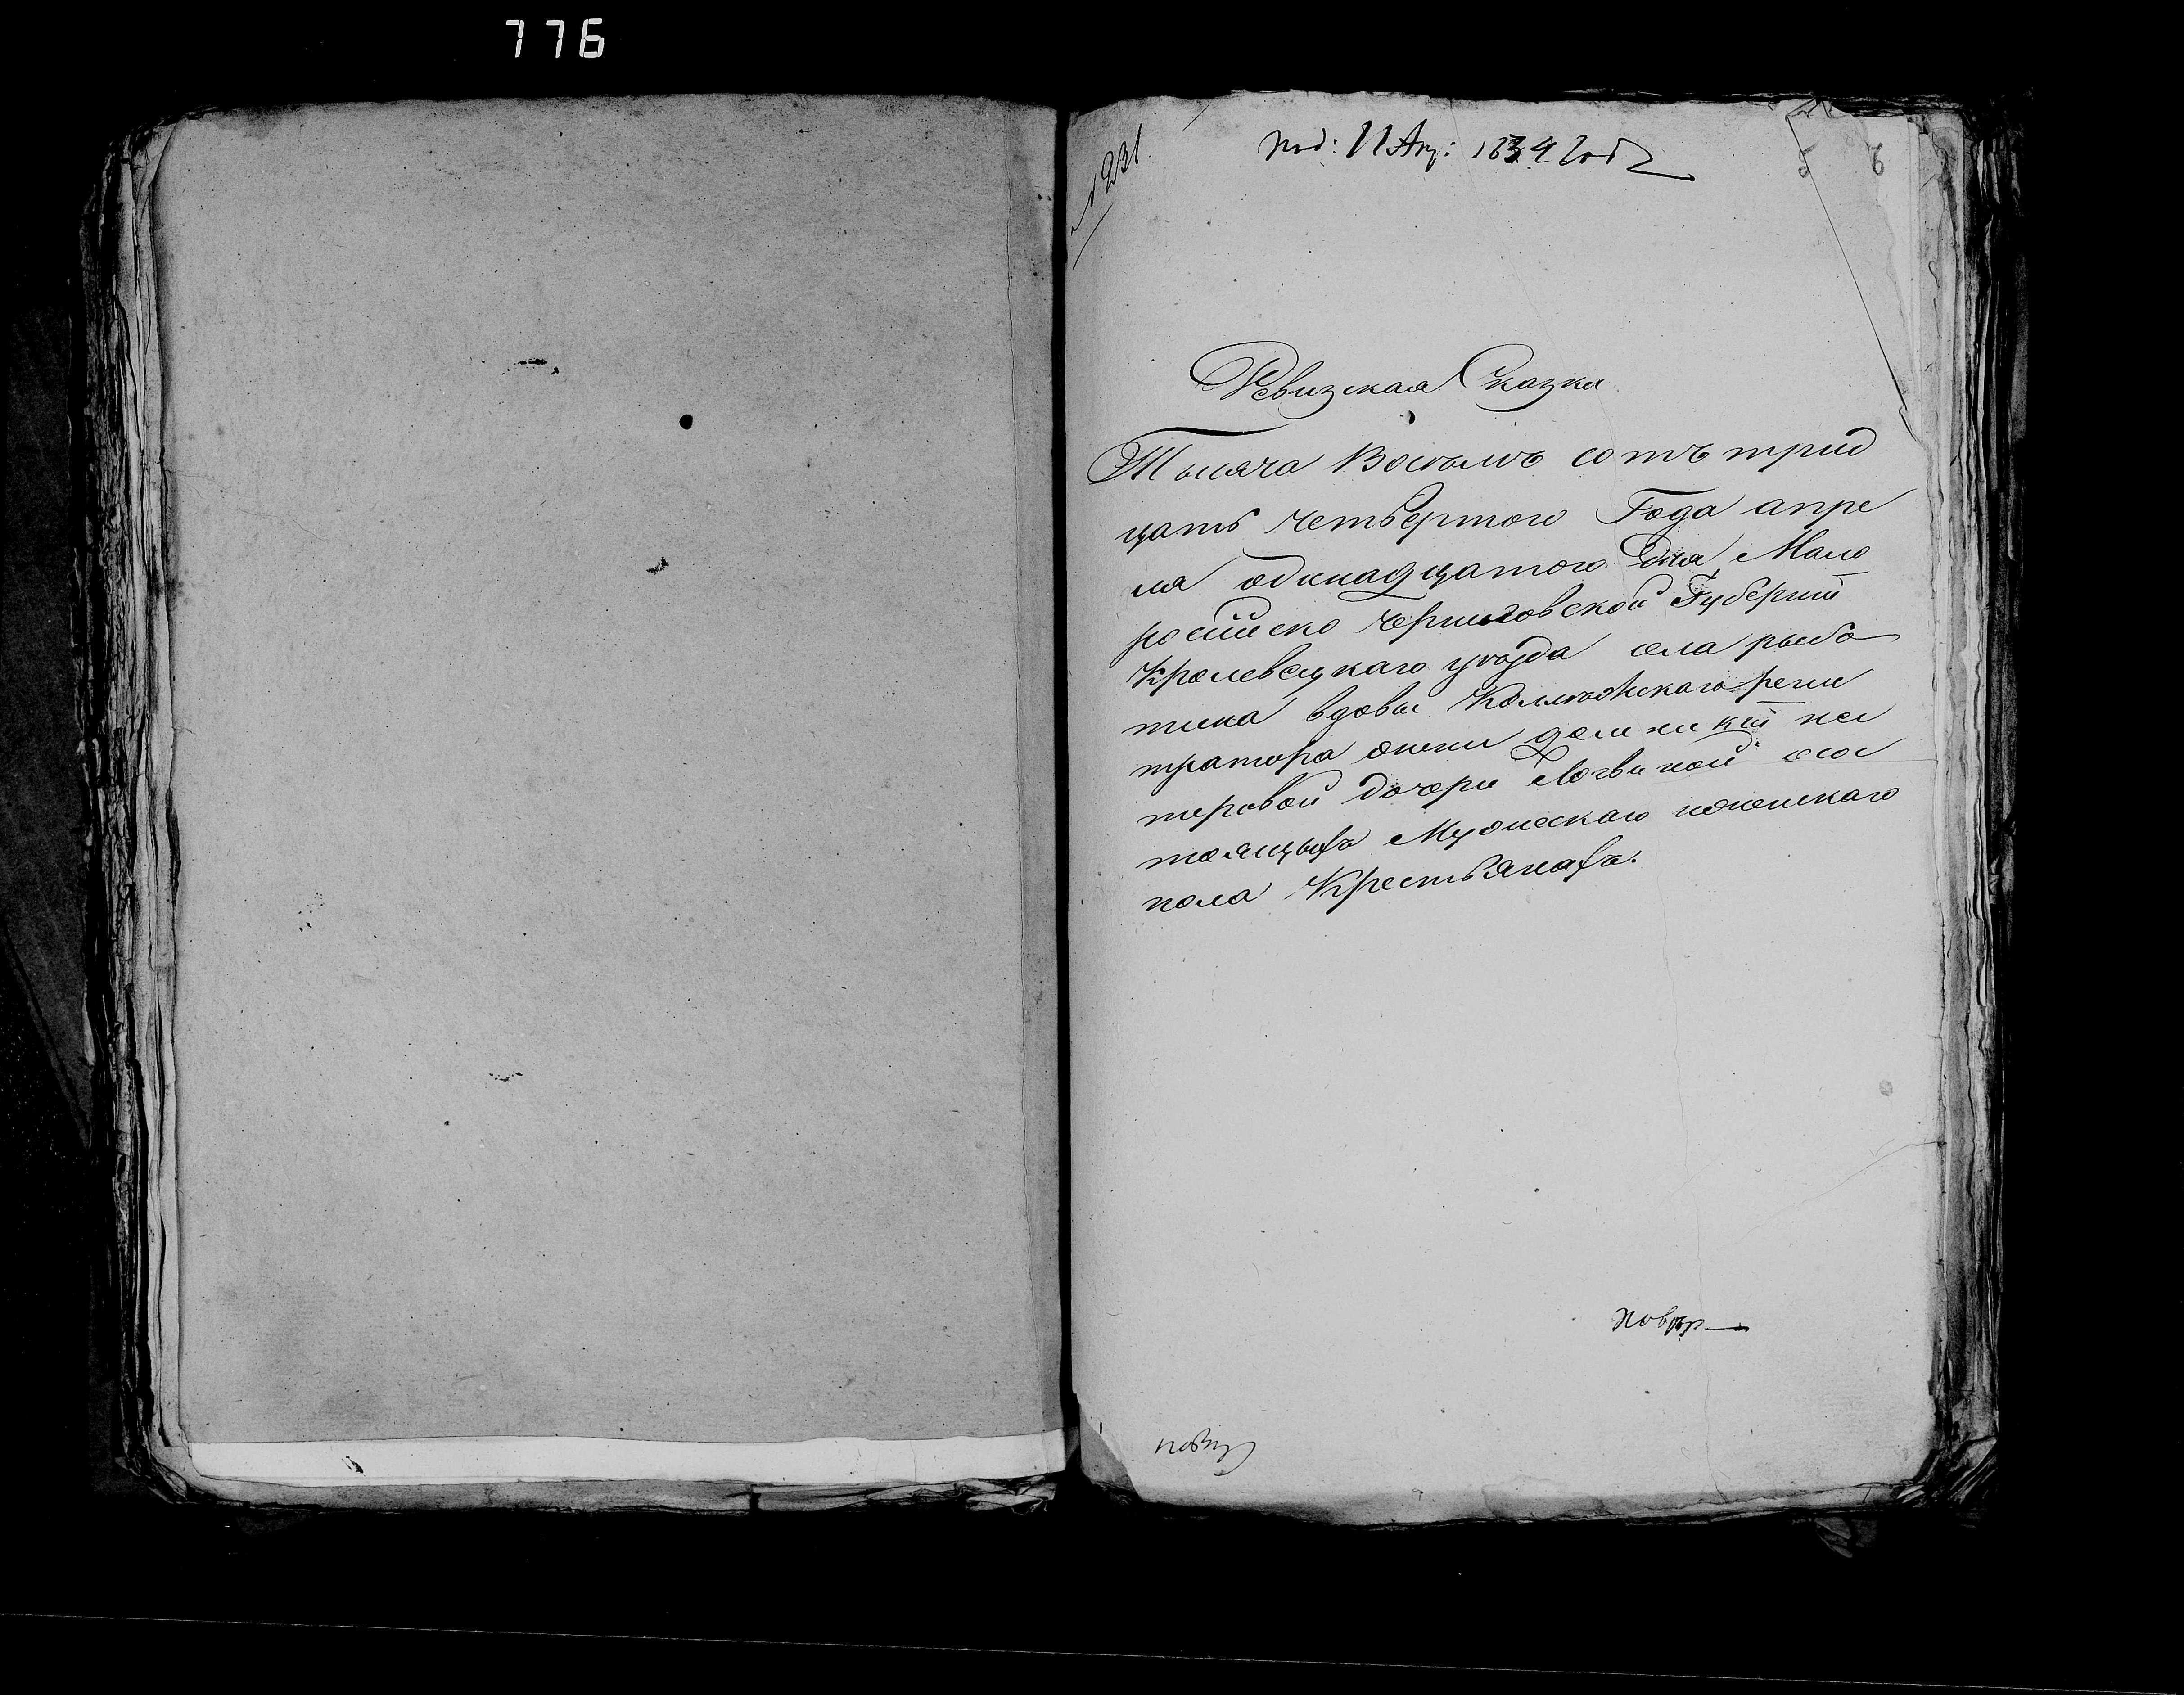 776
№ 231
Под: 11 Апр: 1834 года
5 6
Ревизская Сказка
Тысяча Восѣмъ сотъ трид
цать четвертого Года апре
ля одинадцатого Дня, Мало
росийско Черниговской Губернии
Кролевецкаго уѣзда села рыбо
тина вдовы Коллѣжскаго реги
тратора
дочери состо
тоящихъ Мужескаго иженскаго
пола Крестьянахъ.